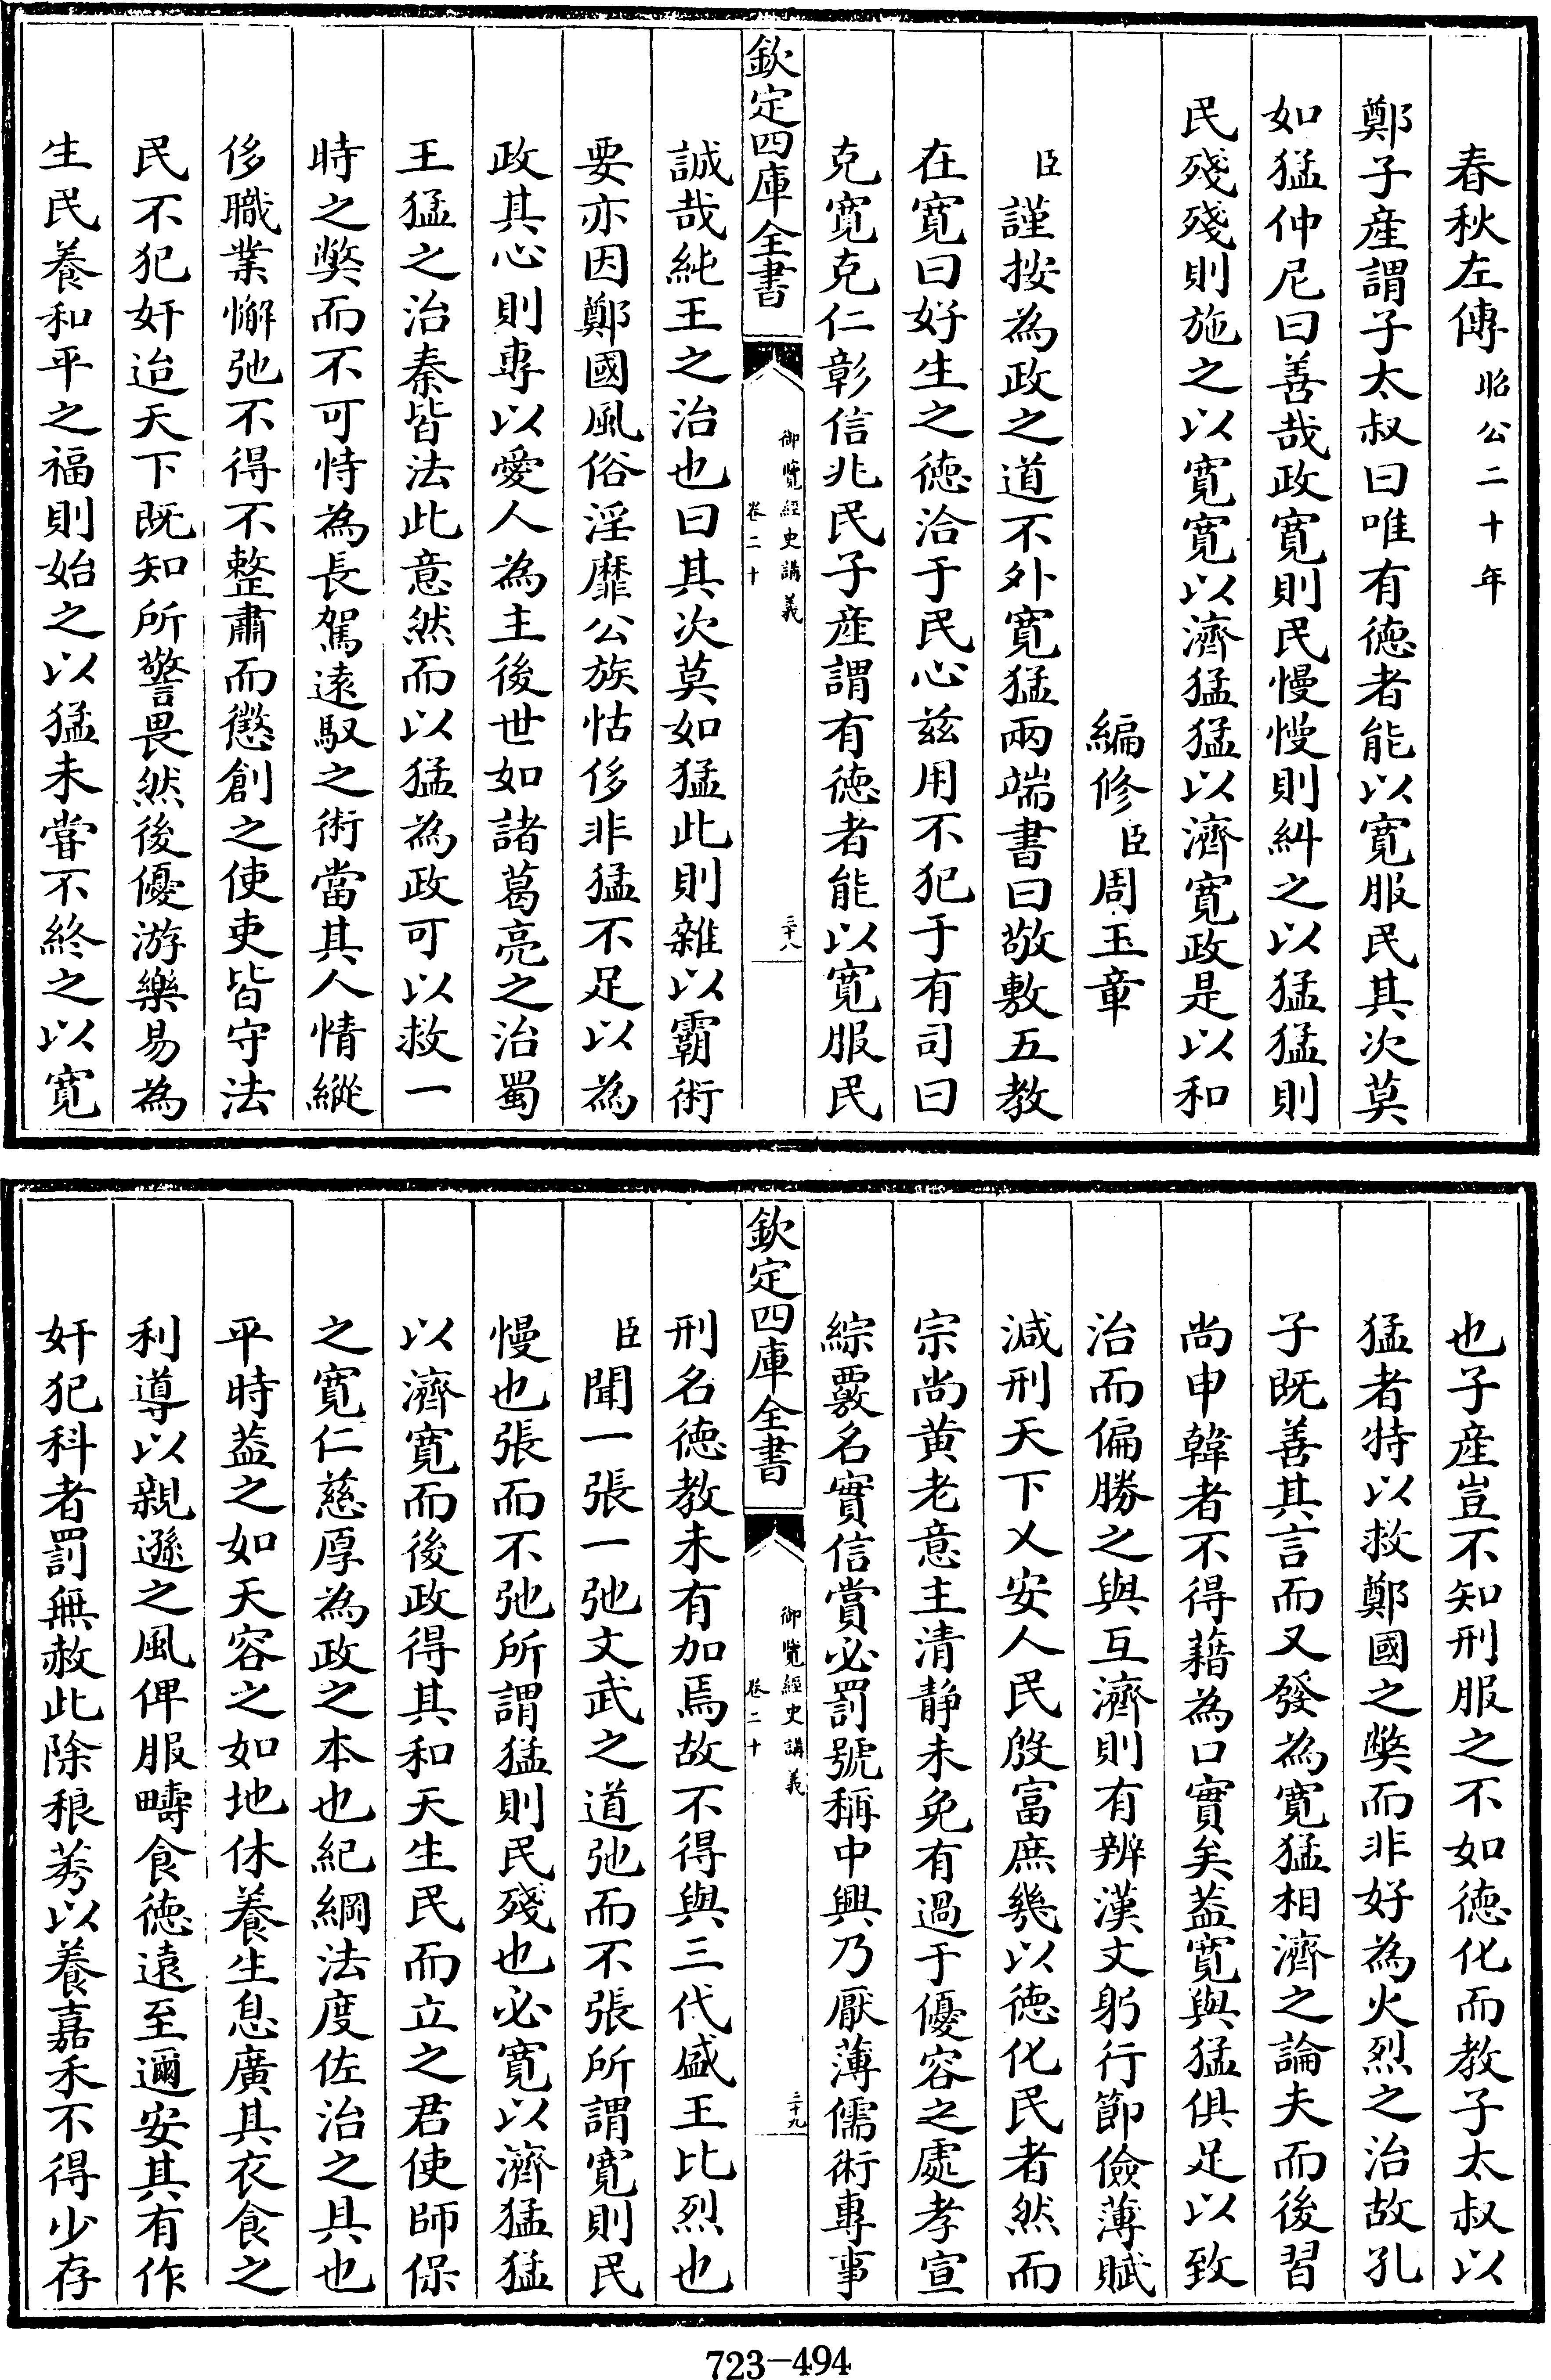 春秋左傳昭公二十年
鄭子産謂子太叔曰唯有徳者能以寛服民其次莫
如猛仲尼曰善哉政寛則民慢慢則糾之以猛猛則
民殘殘則施之以寛寛以濟猛猛以濟寛政是以和
編修臣周玉章
臣謹按為政之道不外寛猛兩端書曰敬敷五教
在寛曰好生之徳洽于民心兹用不犯于有司曰
克寛克仁彰信兆民子産謂有徳者能以寛服民
欽定四庫全書
御覽經史講義
卷二十
三十八
誠哉純王之治也曰其次莫如猛此則雜以霸術
要亦因鄭國風俗淫靡公族怙侈非猛不足以為
政其心則専以愛人為主後世如諸葛亮之治蜀
王猛之治秦皆法此意然而以猛為政可以救一
時之獘而不可恃為長駕遠馭之術當其人情縱
侈職業懈弛不得不整肅而懲創之使吏皆守法
民不犯奸迨天下既知所警畏然後優游樂易為
生民養和平之福則始之以猛未甞不終之以寛
也子産豈不知刑服之不如徳化而教子太叔以
猛者特以救鄭國之獘而非好為火烈之治故孔
子既善其言而又發為寛猛相濟之論夫而後習
尚申韓者不得藉為口實矣葢寛與猛俱足以致
治而偏勝之與互濟則有辨漢文躬行節儉薄賦
減刑天下乂安人民殷富庶幾以徳化民者然而
宗尚黄老意主清静未免有過于優容之處孝宣
綜覈名實信賞必罰號稱中興乃厭薄儒術専事
欽定四庫全書
御覽經史講義
卷二十
三十九
刑名徳教未有加焉故不得與三代盛王比烈也
臣聞一張一弛文武之道弛而不張所謂寛則民
慢也張而不弛所謂猛則民殘也必寛以濟猛猛
以濟寛而後政得其和天生民而立之君使師保
之寛仁慈厚為政之本也紀綱法度佐治之具也
平時葢之如天容之如地休養生息廣其衣食之
利導以親遜之風俾服疇食徳遠至邇安其有作
奸犯科者罰無赦此除稂莠以養嘉禾不得少存
723-494